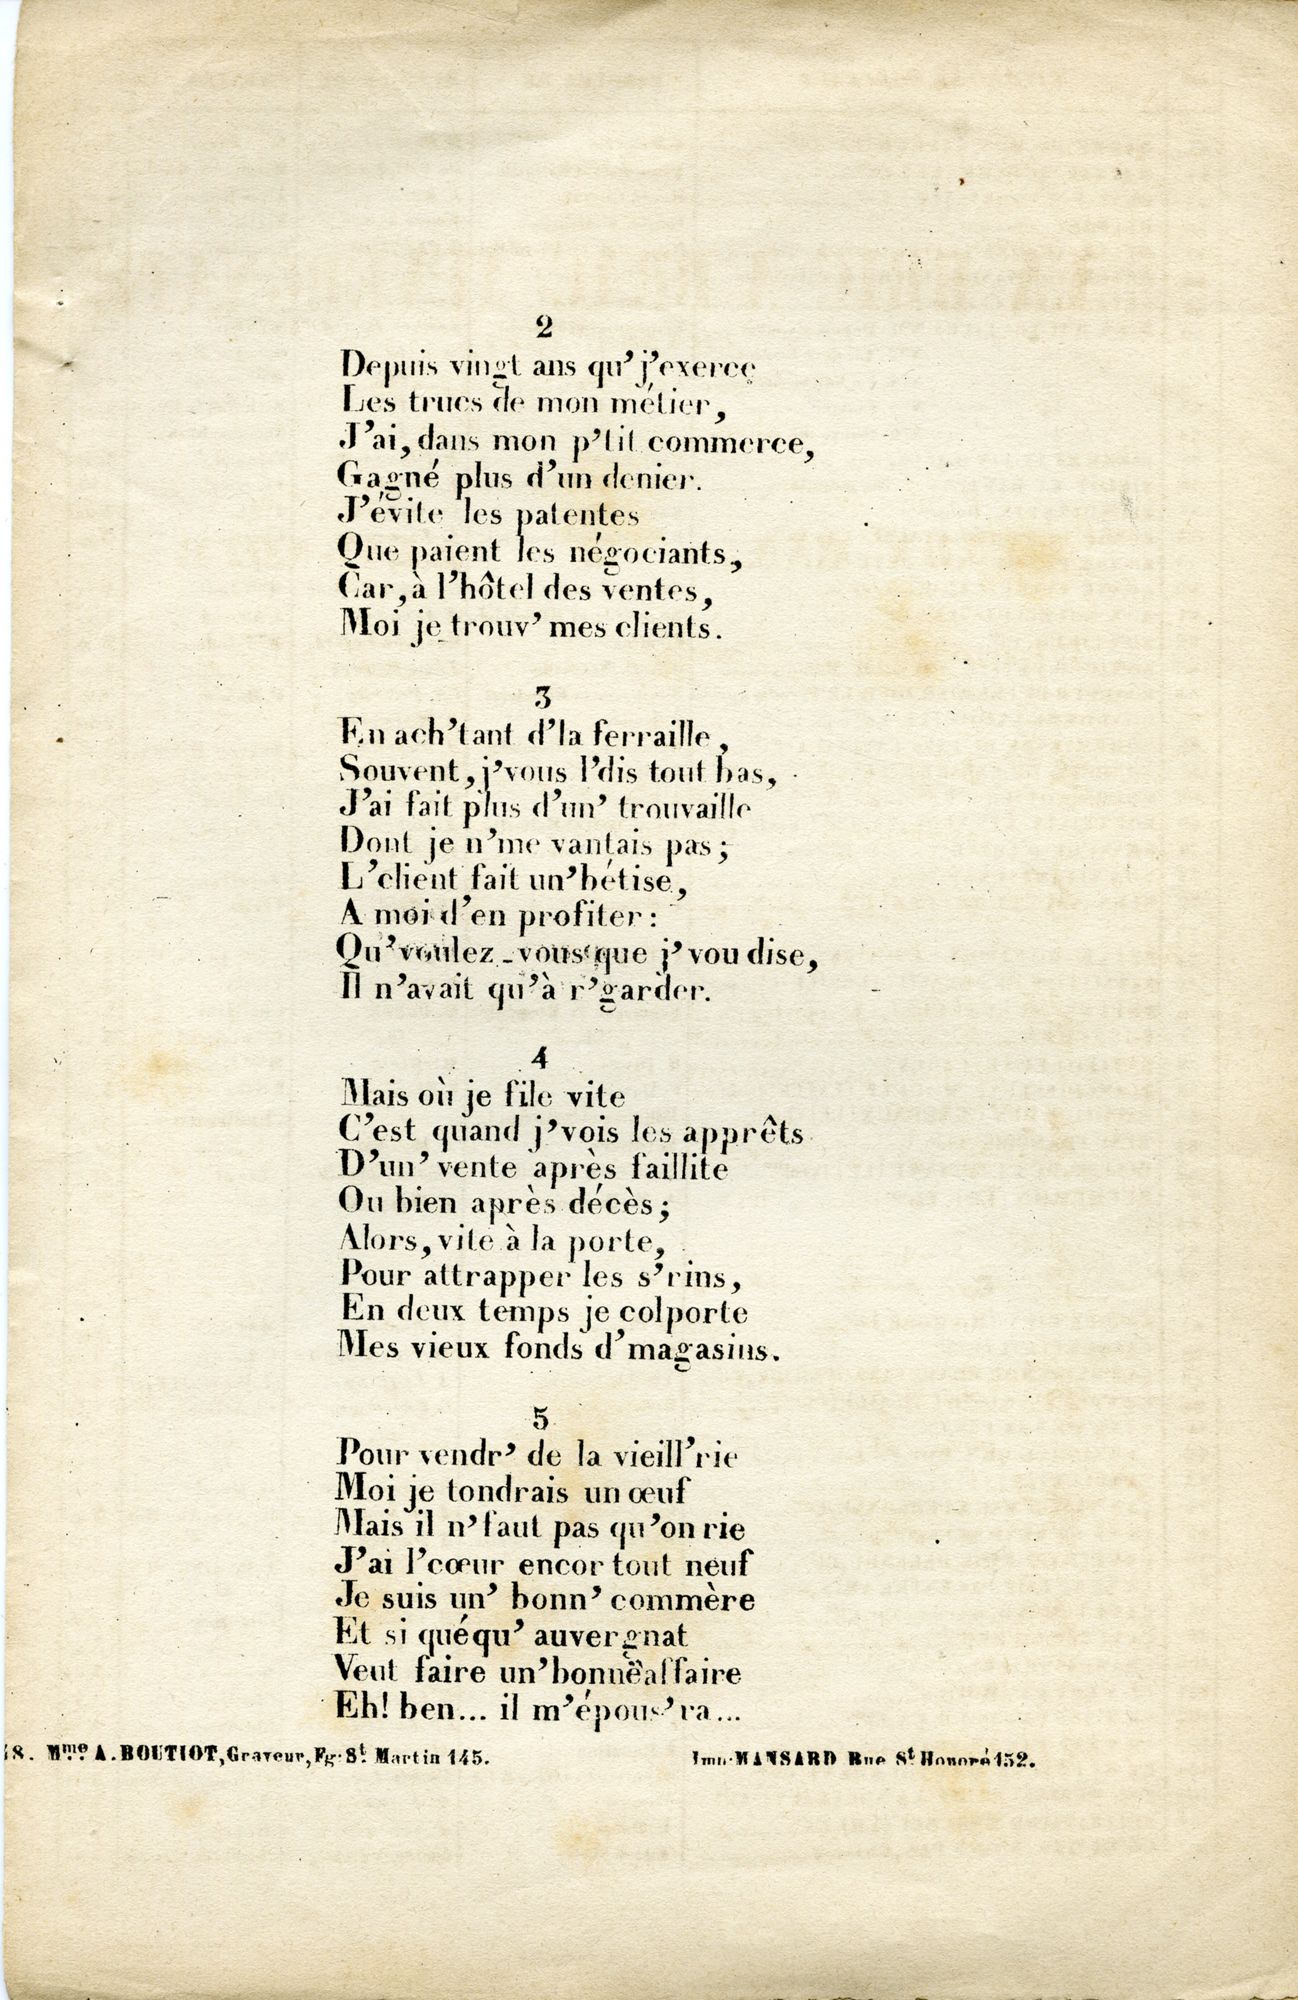 2
Depuis vingt ans qu'j'exerce
Les trucs de mon métier,
J'ai, dans mon p'tit commerce,
Gagné plus d'un denier.
J'évite les patentes
Que paient les négociants,
Car, à l'hôtel des ventes,
Moi je trouv' mes clients.
3
En ach'tant d'la ferraille,
Souvent, j'vous l'dis tout bas,
J'ai fait plus d'un' trouvaille
Dont je n'me vantais pas;
L'client fait un'bétise,
A moi d'en profiter:
Qu'voulez-vous que j'vou dise,
Il n'avait qu'à r'garder.
4
Mais où je file vite
C'est quand j'vois les apprêts
D'un' vente après faillite
Ou bien après décès;
Alors, vite à la porte,
Pour attrapper les s'rins,
En deux temps je colporte
Mes vieux fonds d'magasins.
5
Pour vendr' de la vieill'rie
Moi je tondrais un œuf
Mais il n'faut pas qu'on rie
J'ai l'cœur encor tout neuf
Je suis un' bonn' commère
Et si quéqu' auvergnat
Veut faire un'bonne affaire
Eh! ben... il m'épous'ra...
8. Mme A. BOUTIOT, Graveur, Fg. St. Martin 145.
Imp. MANSARD Rue St Honoré 152.